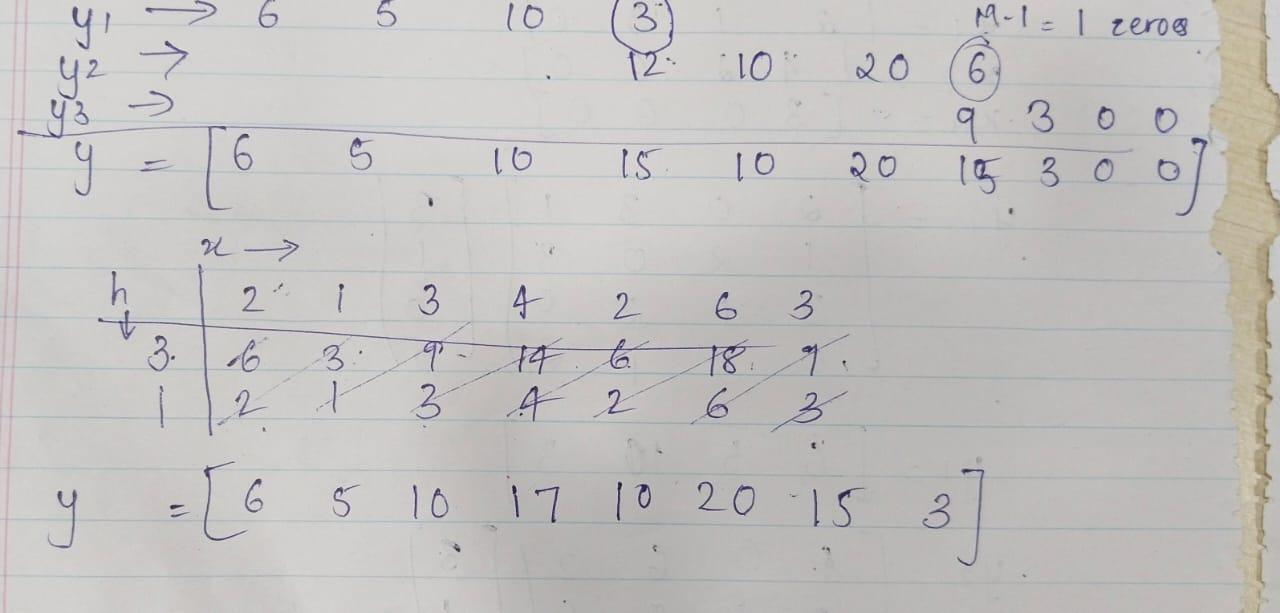 y1 → 6 5 10 3 M-1 = 1 zeros
y2 → 12 10 20 6
y3 → 9 3 0 0
y = [6 5 10 15 10 20 15 3 0 0]
x →
h ↓ 2 1 3 4 2 6 3
3 6 3 9 14 6 18 9
1 2 1 3 4 2 6 3
y = [6 5 10 17 10 20 15 3]